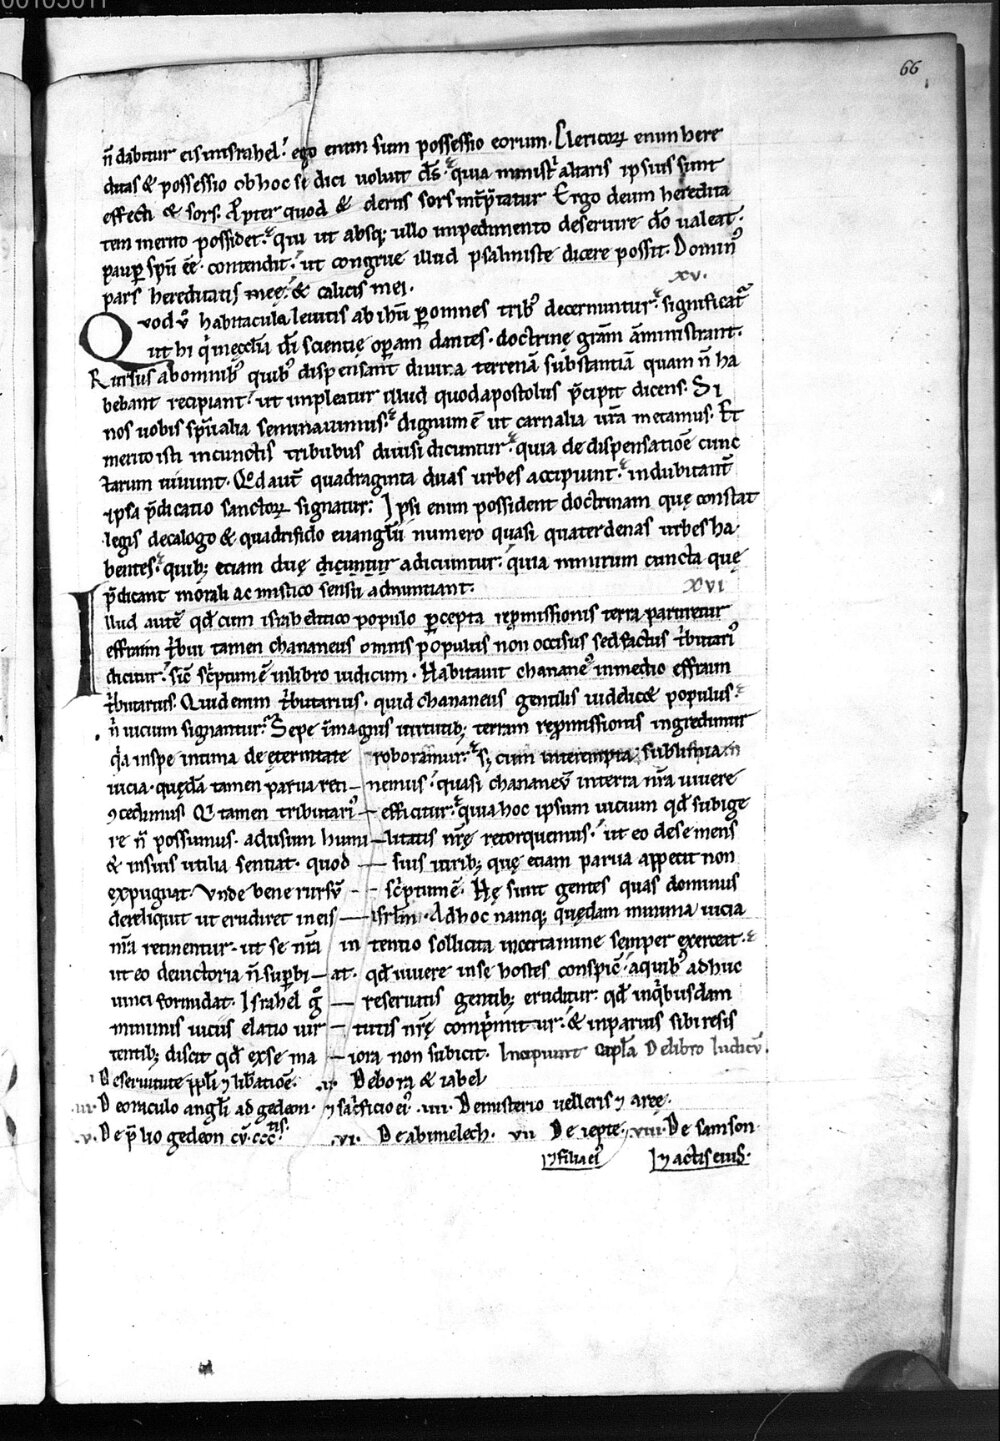 66
n̄ dabitur eis inisrahel. ego enim sum possessio eorum. Clericoꝝ enim here
ditas & possessio obhoc se dici uoluit d̄s. quia ministri altaris ipsius sunt
effecti & sors. Ꝓpter quod & clerus sors int̄p̄tatur Ergo deum heredita
tem merito possidet. qui ut absq; ullo impedimento deseruire dō ualeat.
paup̱ sp̄u ēe contendit. ut congruę illud psalmistę dicere possit. Dominꝰ
pars hereditatis meę. & calicis mei.
xv.
Quod ū habitacula leuitis ab ih̄u ꝑ omnes tribꝰ decernuntur. significat̄
ut hi q̄ in ęcclia d̄i scientię oꝑam dantes. doctrinę gr̄am āministrant.
Rursus abomnibꝰ quibꝰ dispensant diuina terrenā substantiā quam n̄ ha
bebant recipiant. ut impleatur illud quod apostolus p̄cipit dicens. Si
nos uobis sp̄ualia seminauimus. dignum ē ut carnalia ur̄a metamus. Et
merito isti incunctis tribubus diuisi dicuntur. quia de dispensatiōe cunc
tarum uiuunt. Qd aut̄ quadraginta duas urbes accipiunt. indubitant̄
ipsa p̄dicatio sanctoꝝ signatur. Ipsi enim possident doctrinam quę constat
legis decalogo & quadrifido euangl̄ii numero quasi quaterdenas urbes ha
bentes. quib; etiam duę dicuntur adiciuntur. quia nimirum cuncta quę
p̄dicant morali ac mistico sensu adnuntiant.
xvi
Illud autē qd̄ cum israhelitico populo ꝑcepta reꝓmissionis terra partiretur
effraim t̄bui tamen chananeus omnis populus non occisus sed factus t̄butariꝰ
dicitur. sic̄ sc̄ptum ē inlibro iudicum. Habitauit chananeꝰ inmedio effraim
t̄butarius. Quid enim t̄butarius. quid chananeus gentilis uidelicet populus.
n̄ uicium signantur. Sepe īmagnis uirtutib; terram reꝓmissionis ingredimur
q̄a inspe intima de ęternitate roboramur. s; cum interempta sublimia
uicia. quędā tamen parua reti nemus. quasi chananeū interra nr̄a uiuere
ꝯcedimus. Q̇ tamen tributariꝰ efficitur. quia hoc ipsum uicium qd̄ subige
re n̄ possumus. adusum humi litatis nr̄ę retorquemus. ut eo dese mens
& insuis utilia sentiat. quod suis uirib; quę etiam parua appetit non
expugnat. Vnde bene rursū sc̄ptum ē. Hę sunt gentes quas dominus
dereliquit ut erudiret ineis isrl̄m. Adhoc namq; quędam minima uicia
nr̄a retinentur. ut se nr̄a in tentio sollicita incertamine semper exerceat.
ut eo deuictoria n̄ suꝑbi at. qd̄ uiuere inse hostes conspic̄. aquibꝰ adhuc
uinci formidat. Israhel g̊ reseruatis gentib; eruditur. qd̄ inq̄busdam
minimis uiciis elatio uir tutis nr̄ę comp̄mitur. & inparuis sibi resis
tentib; discit qd̄ exse ma iora non subicit. Incipiunt capl̄a Delibro Iudicū.
.i. Deseruitute ppl̄i ⁊ lib̄atiōe. .ii. Debora & iabel
.iii. Deoraculo angl̄i ad gedeon. ⁊ sac̄ficio eiꝰ .iiii. Demisterio uelleris ⁊ areę.
.v. De p̄lio gedeon cū .cccᵗⁱˢ. .vi. De abimelech. vii De iepte .viii. De samson
⁊ filia eiꝰ ⁊ actis eius.